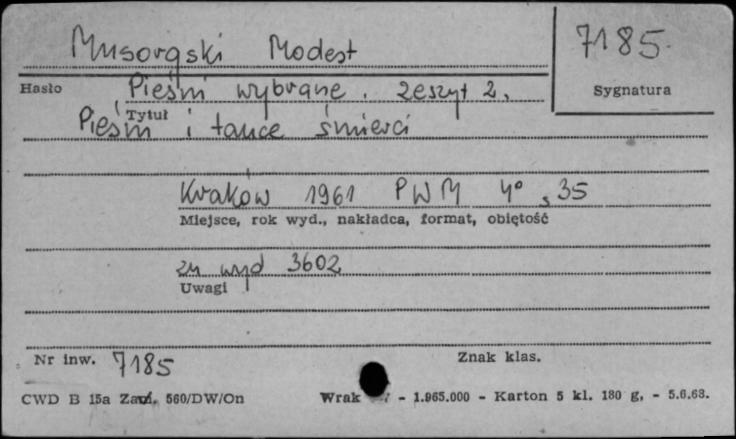 Musorgski Modest
7185
Hasło
Sygnatura
Pieśni wybrane. zeszyt 2.
Tytuł
Pieśni i tańce śmierci
Kraków 1961 PWM 4° s 35
Miejsce, rok wyd., nakładca, format, objętość
zn wyd 3602
Uwagi
Nr inw. 7185
Znak klas.
CWD B 15a Zam. 560/DW/On
Wrak - 1.965.000 - Karton 5 kl. 180 g, - 5.6.68.